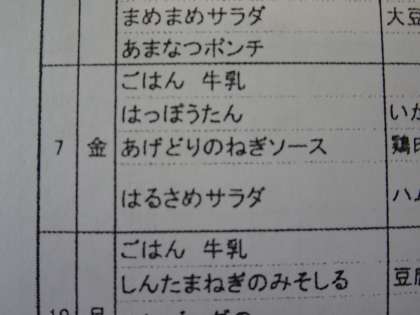 まめまめサラダ 大豆
あまなつポンチ
ごはん 牛乳
はっぽうたん いか
7 金 あげどりのねぎソース 鶏肉
はるさめサラダ ハム
ごはん 牛乳
しんたまねぎのみそしる 豆腐